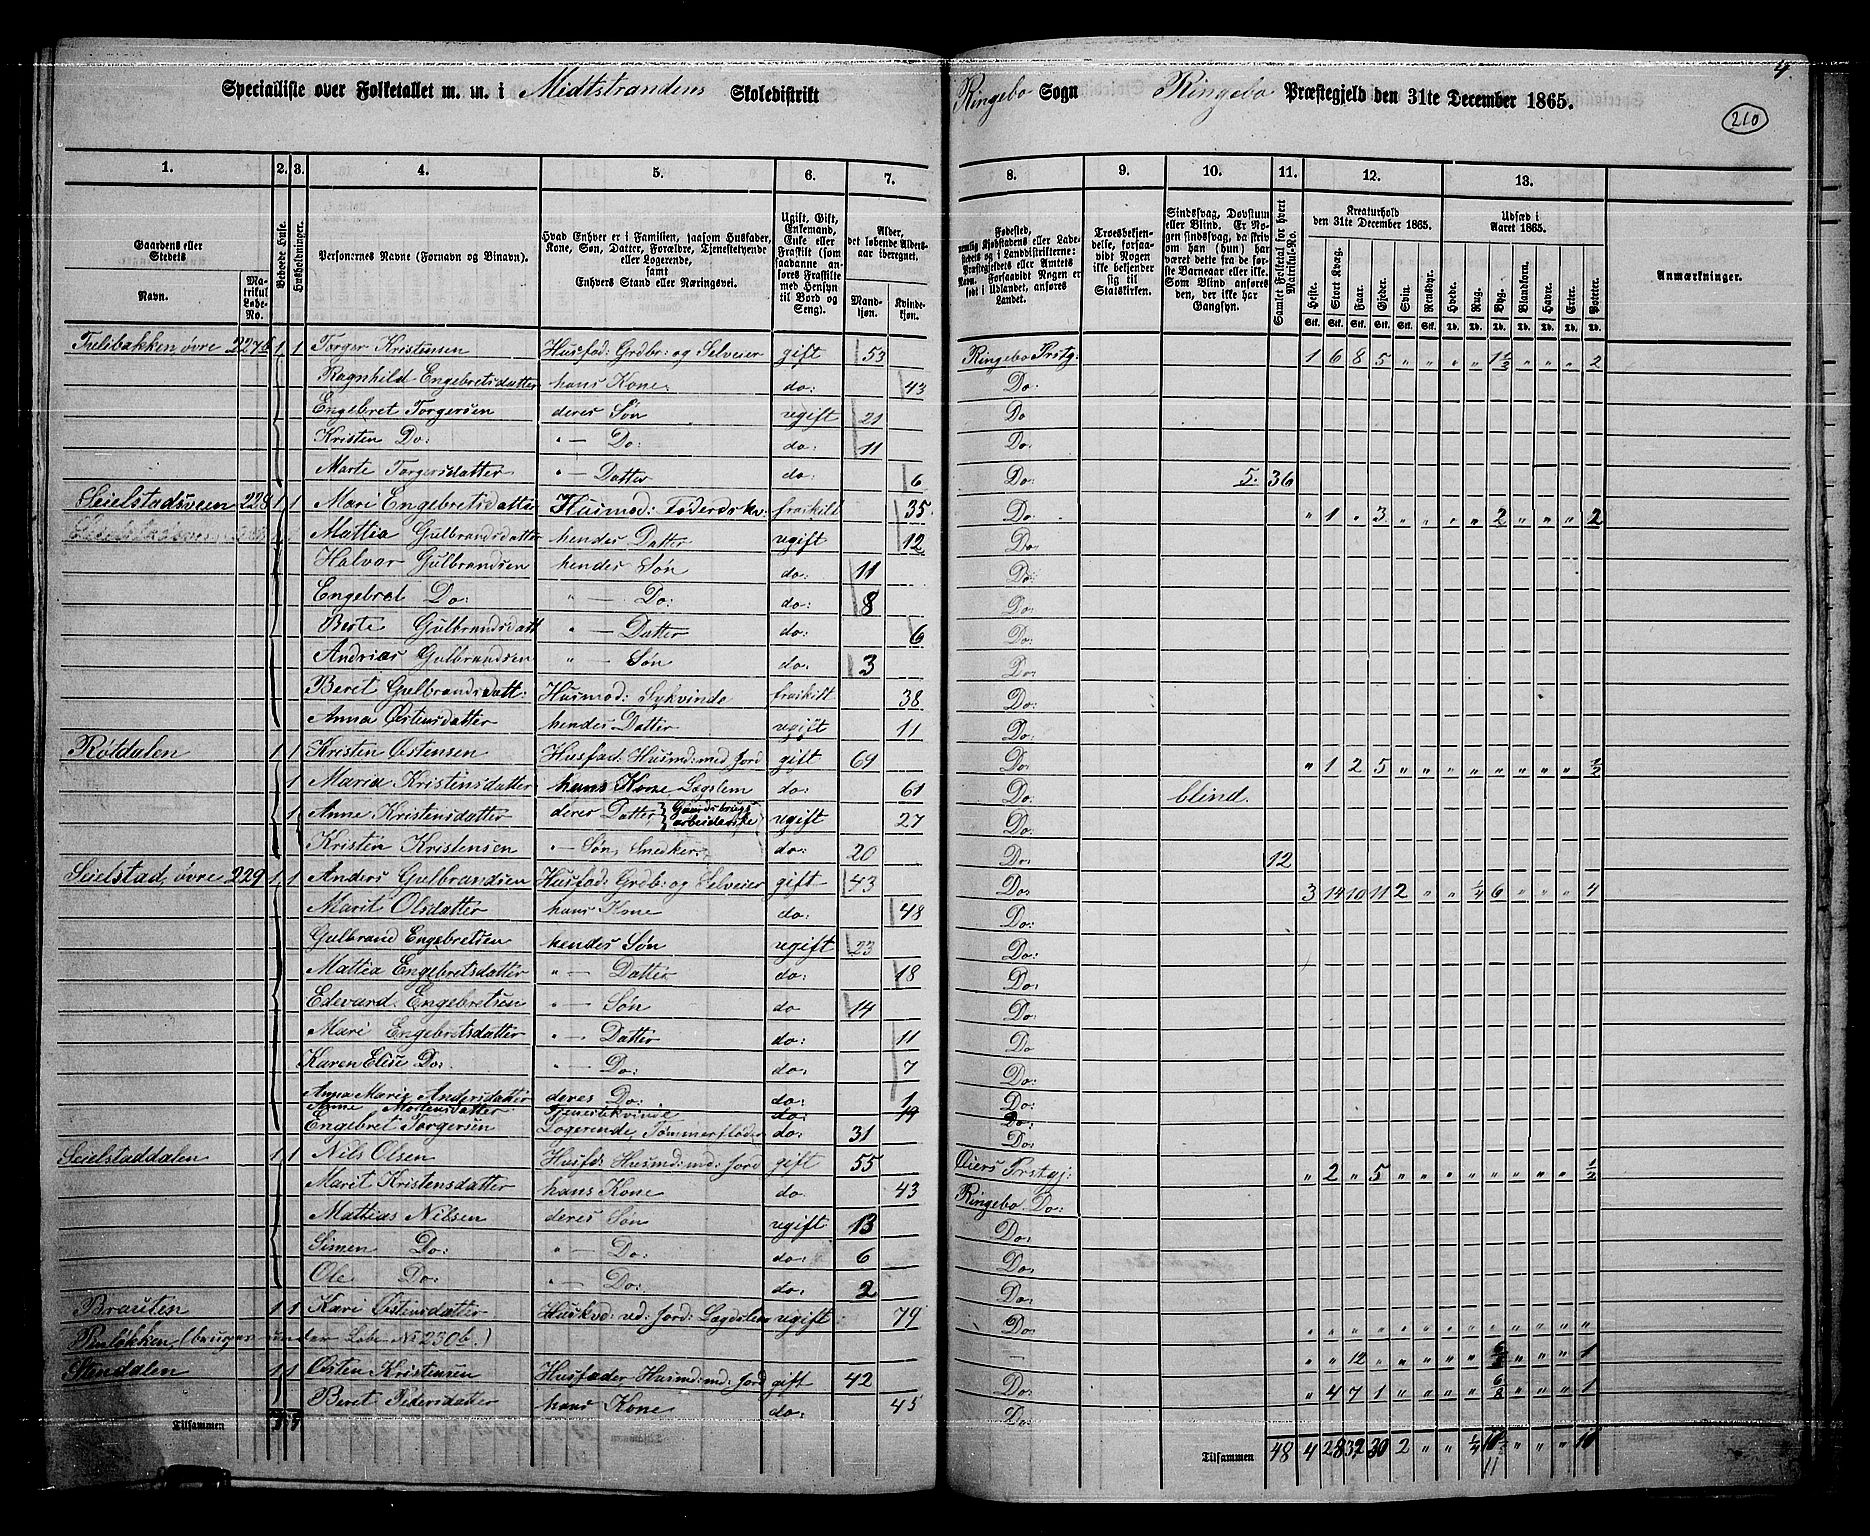 4.
210
Specialliste over Folketallet m. m. i Midtstrandens Skoledistrikt Ringebo Sogn Ringebo Præstegjeld den 31te December 1865.
1. 2. 3. 4. 5. 6. 7. 8. 9. 10. 11. 12. 13.
Gaardens eller Stedets Navn. Matrikul Løbe-No. Beboede Huse. Husholdninger. Personernes Navne (Fornavn og Binavn). Hvad Enhver er i Familien, saasom Husfader, Kone, Søn, Datter, Forældre, Tjenestetyende eller Logerende, samt Enhvers Stand eller Næringsvei. Ugift, Gift, Enkemand, Enke eller Fraskilt (som saadanne anføres Fraskilte med Hensyn til Bord og Seng). Alder, det løbende Aldersaar iberegnet. Mandkjøn. Kvindekjøn.
Fødested, nemlig Kjøbstadens eller Ladestedets og i Landdistrikterne: Præstegjeldets eller Amtets Navn. Forsaavidt Nogen er født i Udlandet, anføres Landet. Troesbekjendelse, forsaavidt Nogen ikke bekjender sig til Statskirken. Sindssvag, Døvstum eller Blind. Er Nogen sindssvag, da skrives om han (hun) har været dette fra de første Barneaar eller ikke. Som Blind anføres den, der ikke har Gangsyn. Samlet Folketal for hvert Matrikul-No. Kreaturhold den 31te December 1865. Udsæd i Aaret 1865. Anmærkninger.
Heste. Stort Kvæg. Faar. Gjeder. Svin. Rensdyr. Hvede. Rug. Byg. Blandkorn. Havre. Erter. Poteter.
Stk. Stk. Stk. Stk. Stk. Stk. Td. Td. Td. Td. Td. Td. Td.
Tulibakken, øvre 227b 1 1 Torger Kristensen Husfad: Grdbr: og Selveier gift 53 Ringebo Prstg: 1 6 8 5 " " " " 1½ " " " 2
Ragnhild Engebretsdatter hans Kone do: 43 Do:
Engebret Torgersen deres Søn ugift 21 Do
Kristen Do: " — Do: do: 11 Do:
Marte Torgersdatter " — Datter do: 6 Do: 5. 36
Seielstadsveen 228 1 1 Mari Engebretsdatter Husmod: Føderådskv: fraskild 35 Do: " 1 " 3 " " " " 2 " " " 2
Mattia Gulbrandsdatter hendes Datter ugift 12 Do:
Halvor Gulbrandsen hendes Søn do: 11 Do:
Engebret Do: " — Do: do: 8 Do:
Berte Gulbrandsdatt " — Datter do: 6 Do:
Andrias Gulbrandsen " — Søn do: 3 Do:
Beret Gulbrandsdatt: Husmod: Sykvinde fraskilt 38 Do:
Anna Østensdatter hendes Datter ugift 11 Do:
Røtdalen 1 1 Kristen Østensen Husfad: Husmd: med Jord gift 69 Do: " 1 2 5 " " " " " " " " ½
1 Maria Kristensdatter hans Kone Lægslem do: 61 Do: blind.
1 Anne Kristensdatter deres Datter, Gaardsbrugsarbeiderske ugift 27 Do:
Kristen Kristensen " — Søn, Snedker do: 20 Do: 12
Seielstad, øvre 229 1 1 Anders Gulbrandsen Husfad: Grdb: og Selveier gift 43 Do: 3 14 10 11 2 " " ¼ 6 " " " 4
Marit Olsdatter hans Kone do: 48 Do:
Gulbrand Engebretsen hendes Søn ugift 23 Do:
Mattia Engebretsdatter " — Datter do: 18 Do:
Edevard Engebretsen " — Søn do 14 Do:
Mari Engebretsdatter " — Datter do: 11 Do
Karen Elise Do: " — Do: do: 7 Do:
Anna Marie Andersdatter deres Do: do: 1 Do:
Anne Mortensdatter Tjenestekvinde do: 19 Do:
Engebret Torgersen Logerende, Tømmerfløder do: 31 Do:
Seielstaddalen 1 1 Nils Olsen Husfd: Husmd: md: Jord gift 55 Øiers Prstgj: " 2 " 5 " " " " " " " " ½
Marit Kristensdatter hans Kone do. 43 Ringebo Do:
Mathias Nilsen deres Søn ugift 13 Do:
Simen Do: " — Do: do: 6 Do:
Ole Do: " — Do: do: 2 Do:
Brauten 1 1 Kari Østensdatter Huskvd: ud: Jord: Lægdslem ugift 79 Do: " " " " " " " " " " " " "
Penløkken, (bruges under Løbe No 230b.) — " " 12 " " " " " " " " 1
Stendalen 1 1 Østen Kristensen Husfader Husmd: md: Jord gift 42 Do: " 4 7 1 " " " " 6/8 " " " 1
Beret Pedersdatter hans Kone do: 45 Do:
Tilsammen 7 7 Tilsammen 48 4 28 37 30 2 " " ¼ 10½ " " " 10
11